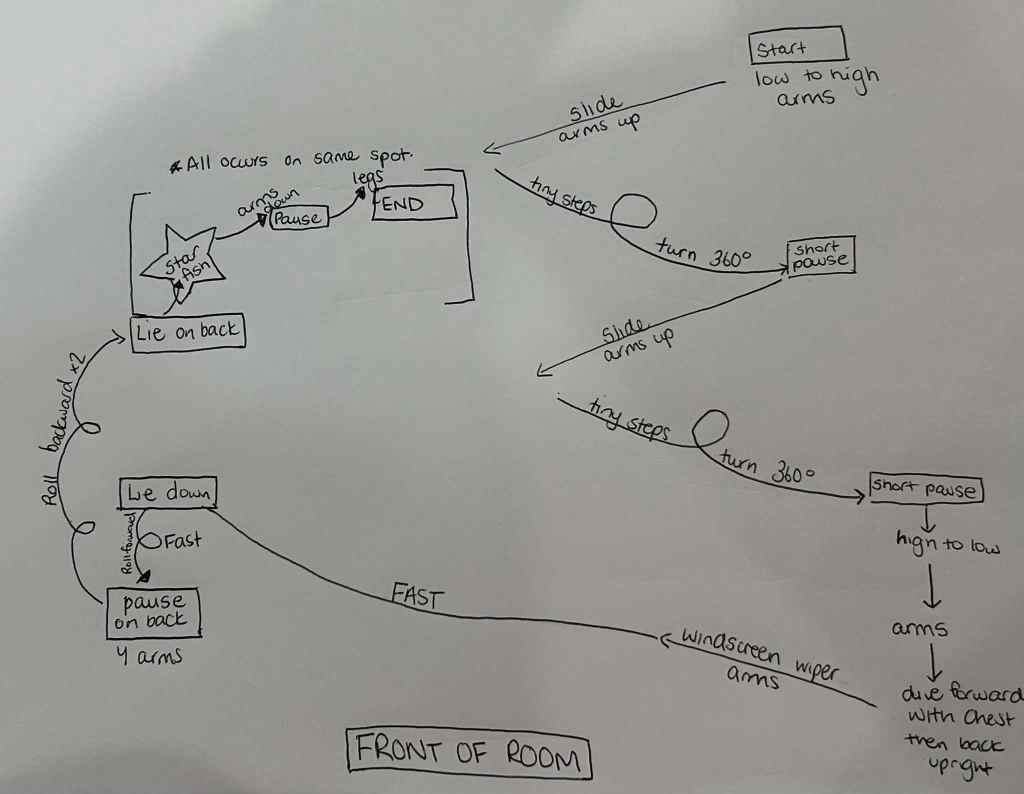 Start
low to high
arms
slide
arms up
tiny steps
turn 360°
short
pause
slide
arms up
tiny steps
turn 360°
short pause
high to low
arms
dive forward
with chest
then back
upright
windscreen wiper
arms
FAST
Lie down
Roll forward
Fast
pause
on back
4 arms
Roll backward x2
Lie on back
*All occurs on same spot.
star
fish
arms
down
Pause
legs
END
FRONT OF ROOM